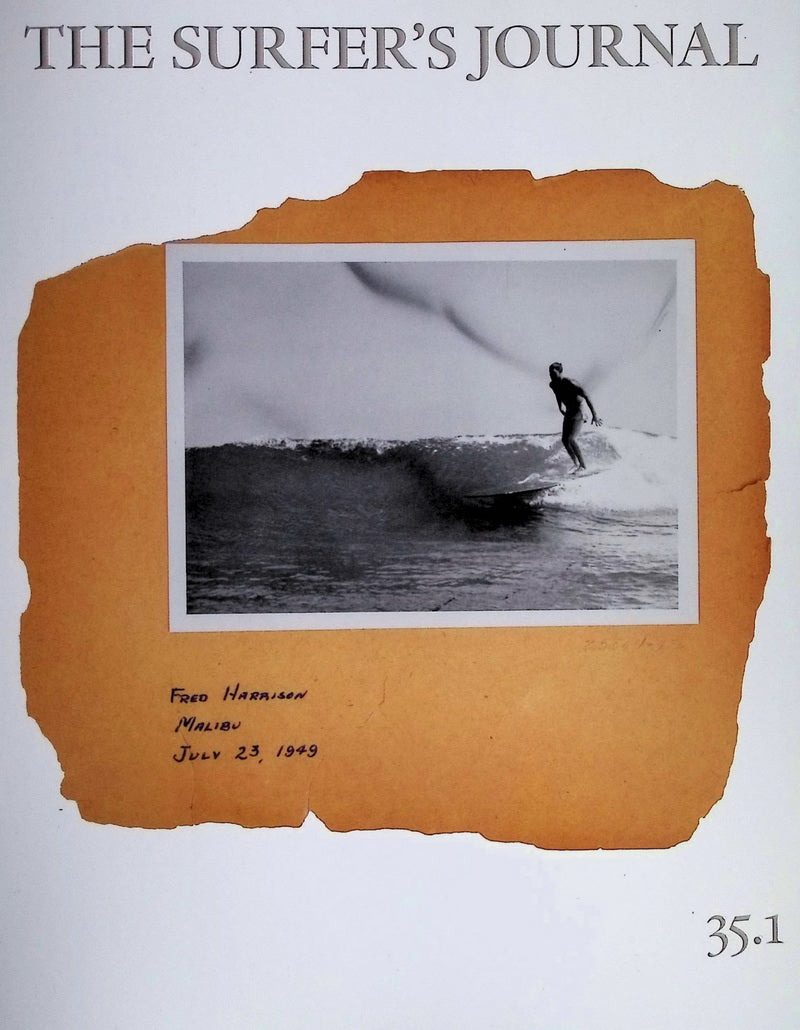 THE SURFER'S JOURNAL
FRED HARRISON
MALIBU
JULY 23, 1949
35.1